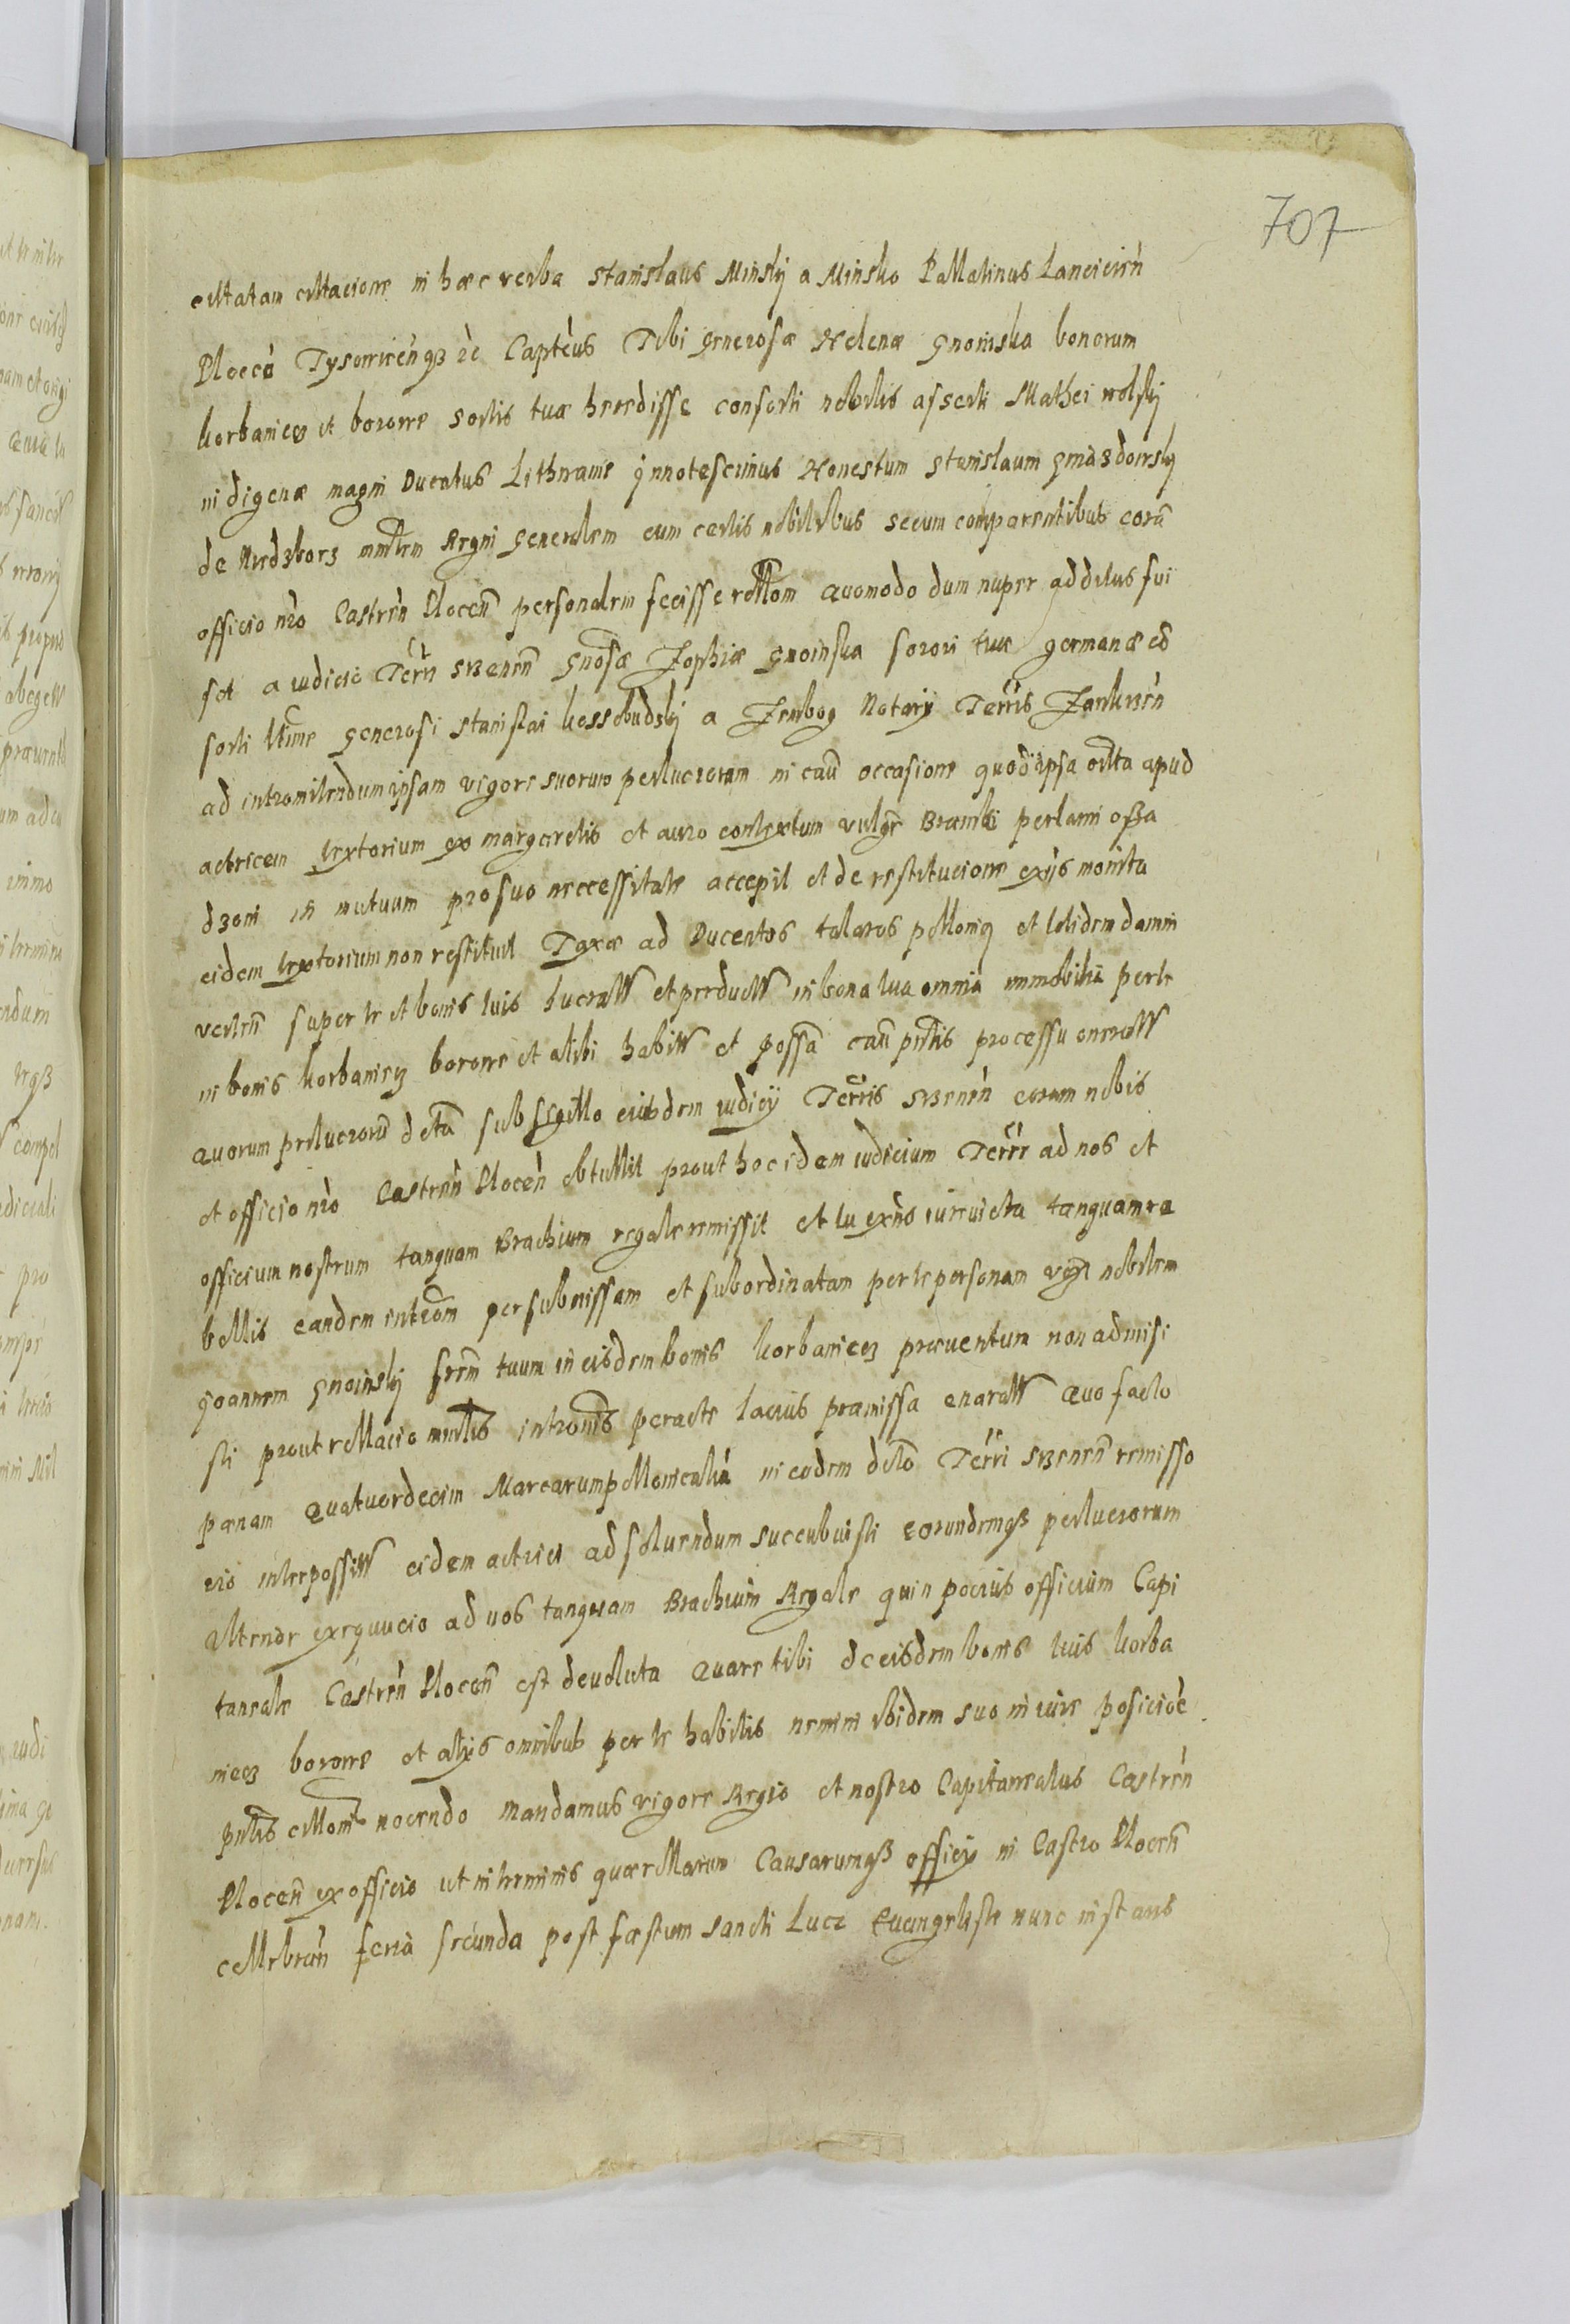 707
cittatam cittacione in hæc verba Stanislaus Minskÿ a Minsko Pallatinus Lanciciēn
Plocēn Tysoviceñqȝ ēc Capt̄eus Tibi generosæ Helenæ Gnoinska bonorum
Korbanicȝ et borowe sortis tuæ heredisse consorti nobilis asserti Mathei wolskÿ
indigenæ magni Ducatus Lithvanie ÿnnotescimus Honestum Stanislaum
de Niedzborz mnltrm Regni generalem cum certis nobilibus secum comparentibus corā
officio nr̄o Castreñ Plocen̄ personalem fecisse rellōm Quomodo dum nuper additus fui
set a iudicio Terr̄i Srzenen̄ gnōsæ Zophiæ Gnoinska sorori tuæ germanæ cō
sorti ltīme generosi Stanislai kossobudskÿ a Zenbog Notarÿ Terr̄is Zawkrzēn
ad intromitendum ipsam vigore suorum perlucrorum in caū occasione quod ipsa cītta apud
actricem textorium ex margaretis et auro contextum vulgr̄ Bramki perlami
dzoni in mutuum pro suo neccessitate accepit et de restitucione exÿs monita
eidem textorium non restituit Taxæ ad Ducentos talaros pollonicȝ et totidem damni
vertēn super te et bonis tuis lucratt et perductt in bona tua omnia immobilia per te
in bonis korbanicȝ borowe et alibi habitt et possā caū pn̄tis processu oneratt
Quorum perlucrorū dctā sub sigillo eiusdem iudicÿ Terr̄is Srzenēn coram nobis
et officio nr̄o Castrēn Plocēn obtullit prout hoc idem iudicium Terr̄e ad nos et
officium nostrum tanquam Brachium regale remissit et tu exn̄s iure victa tanquam re
bellis eandem introm̄ per submissam et subordinatam per te personam nobilem
Joannem Gnoinskÿ fr̄em tuum in eisdem bonis korbanicȝ præventum non admisi
sti prout rellacio mn̄ltis intromis̄ peractæ lacius præmissa enaratt Quo facto
pænam Quatuordecim Marcarum pollonicaliū in eodem dcto Terr̄i Srzenen̄ remisso
rio interpositt eidem actrici ad solvendum succubuisti eorundemqȝ perlucrorum
exequucio ad nos tanquam Brachium Regale quin pocius officium Capi
taneale Castrēn Plocen̄ est devoluta Quare tibi de eisdem bonis tuis korba
nicȝ borowe et alÿs omnibus per te habitis nemini ibidem suo in iure posicioē
pn̄tis nocendo mandamus vigore Regio et nostro Capitanealus Castrēn
Plocen̄ ex officio ut in terminis quærellarum Causarumqȝ officÿ in Castro Plocen̄
cellebrān feria secunda post fæstum Sancti Lucæ Evangeliste nunc instans